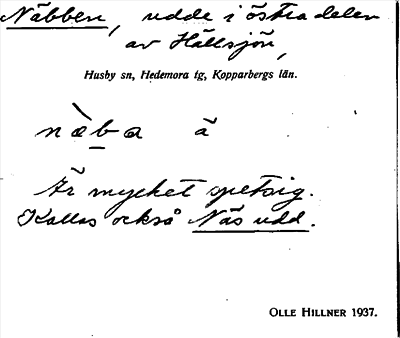 Näbben, udde i östra delen
av Hällsjön,
Husby sn, Hedemora tg, Kopparbergs län.
næ̀ba ã
Är mycket spetsig.
Kallas också Näs udd.
OLLE HILLNER 1937.